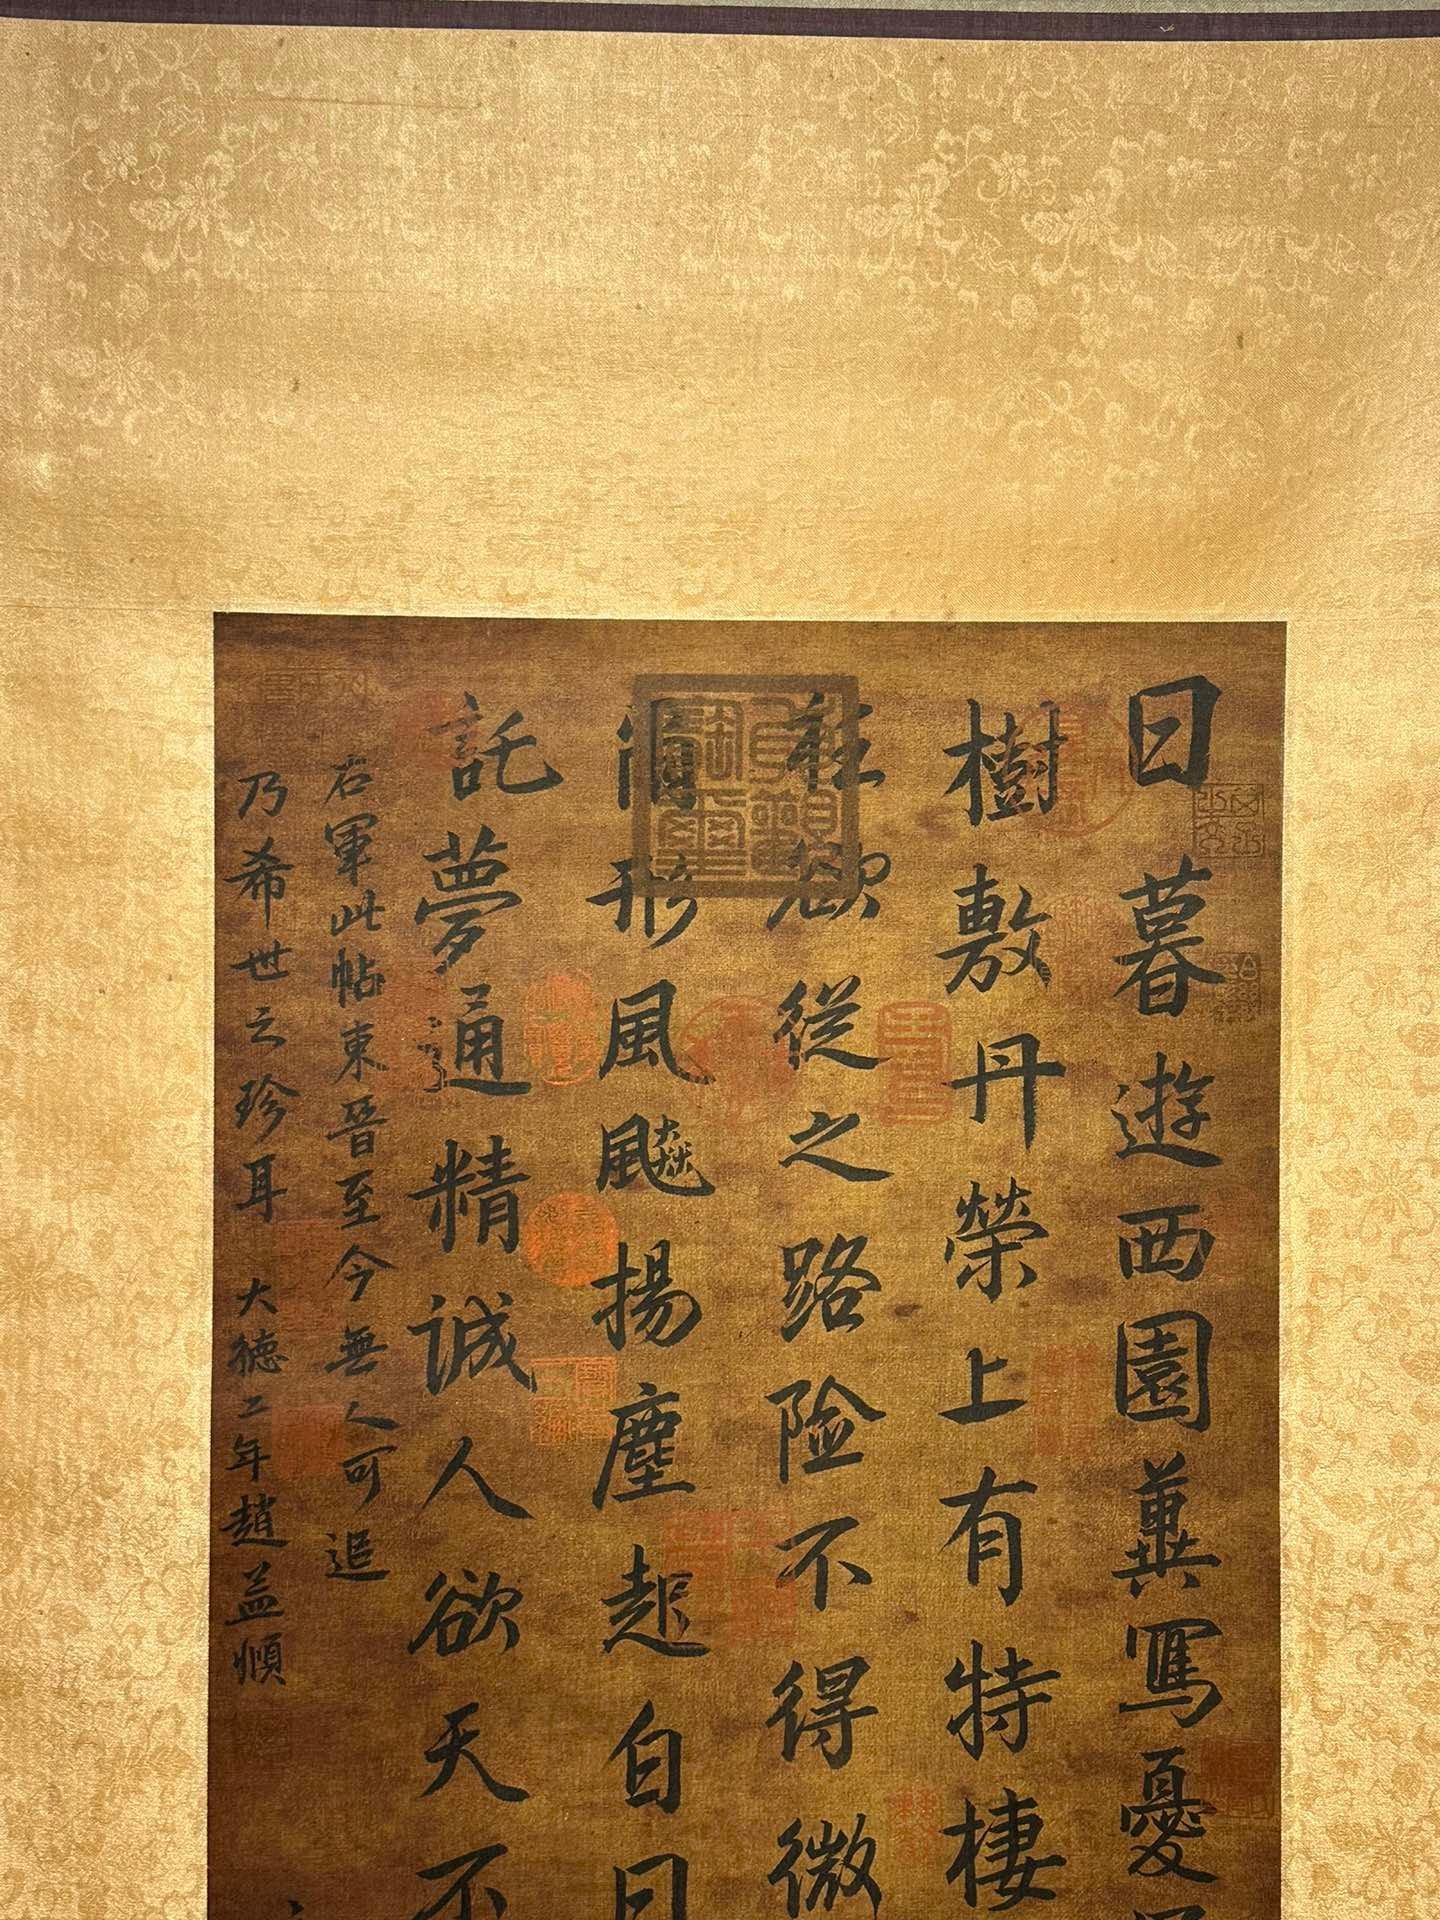 日暮遊西園冀寫憂
樹敷丹榮上有特棲
欲從之路险不得微
形風飈揚塵起白日
託夢通精誠人欲天不
右軍此帖東晉至今無人可追
乃希世之珍耳 大德二年趙益順